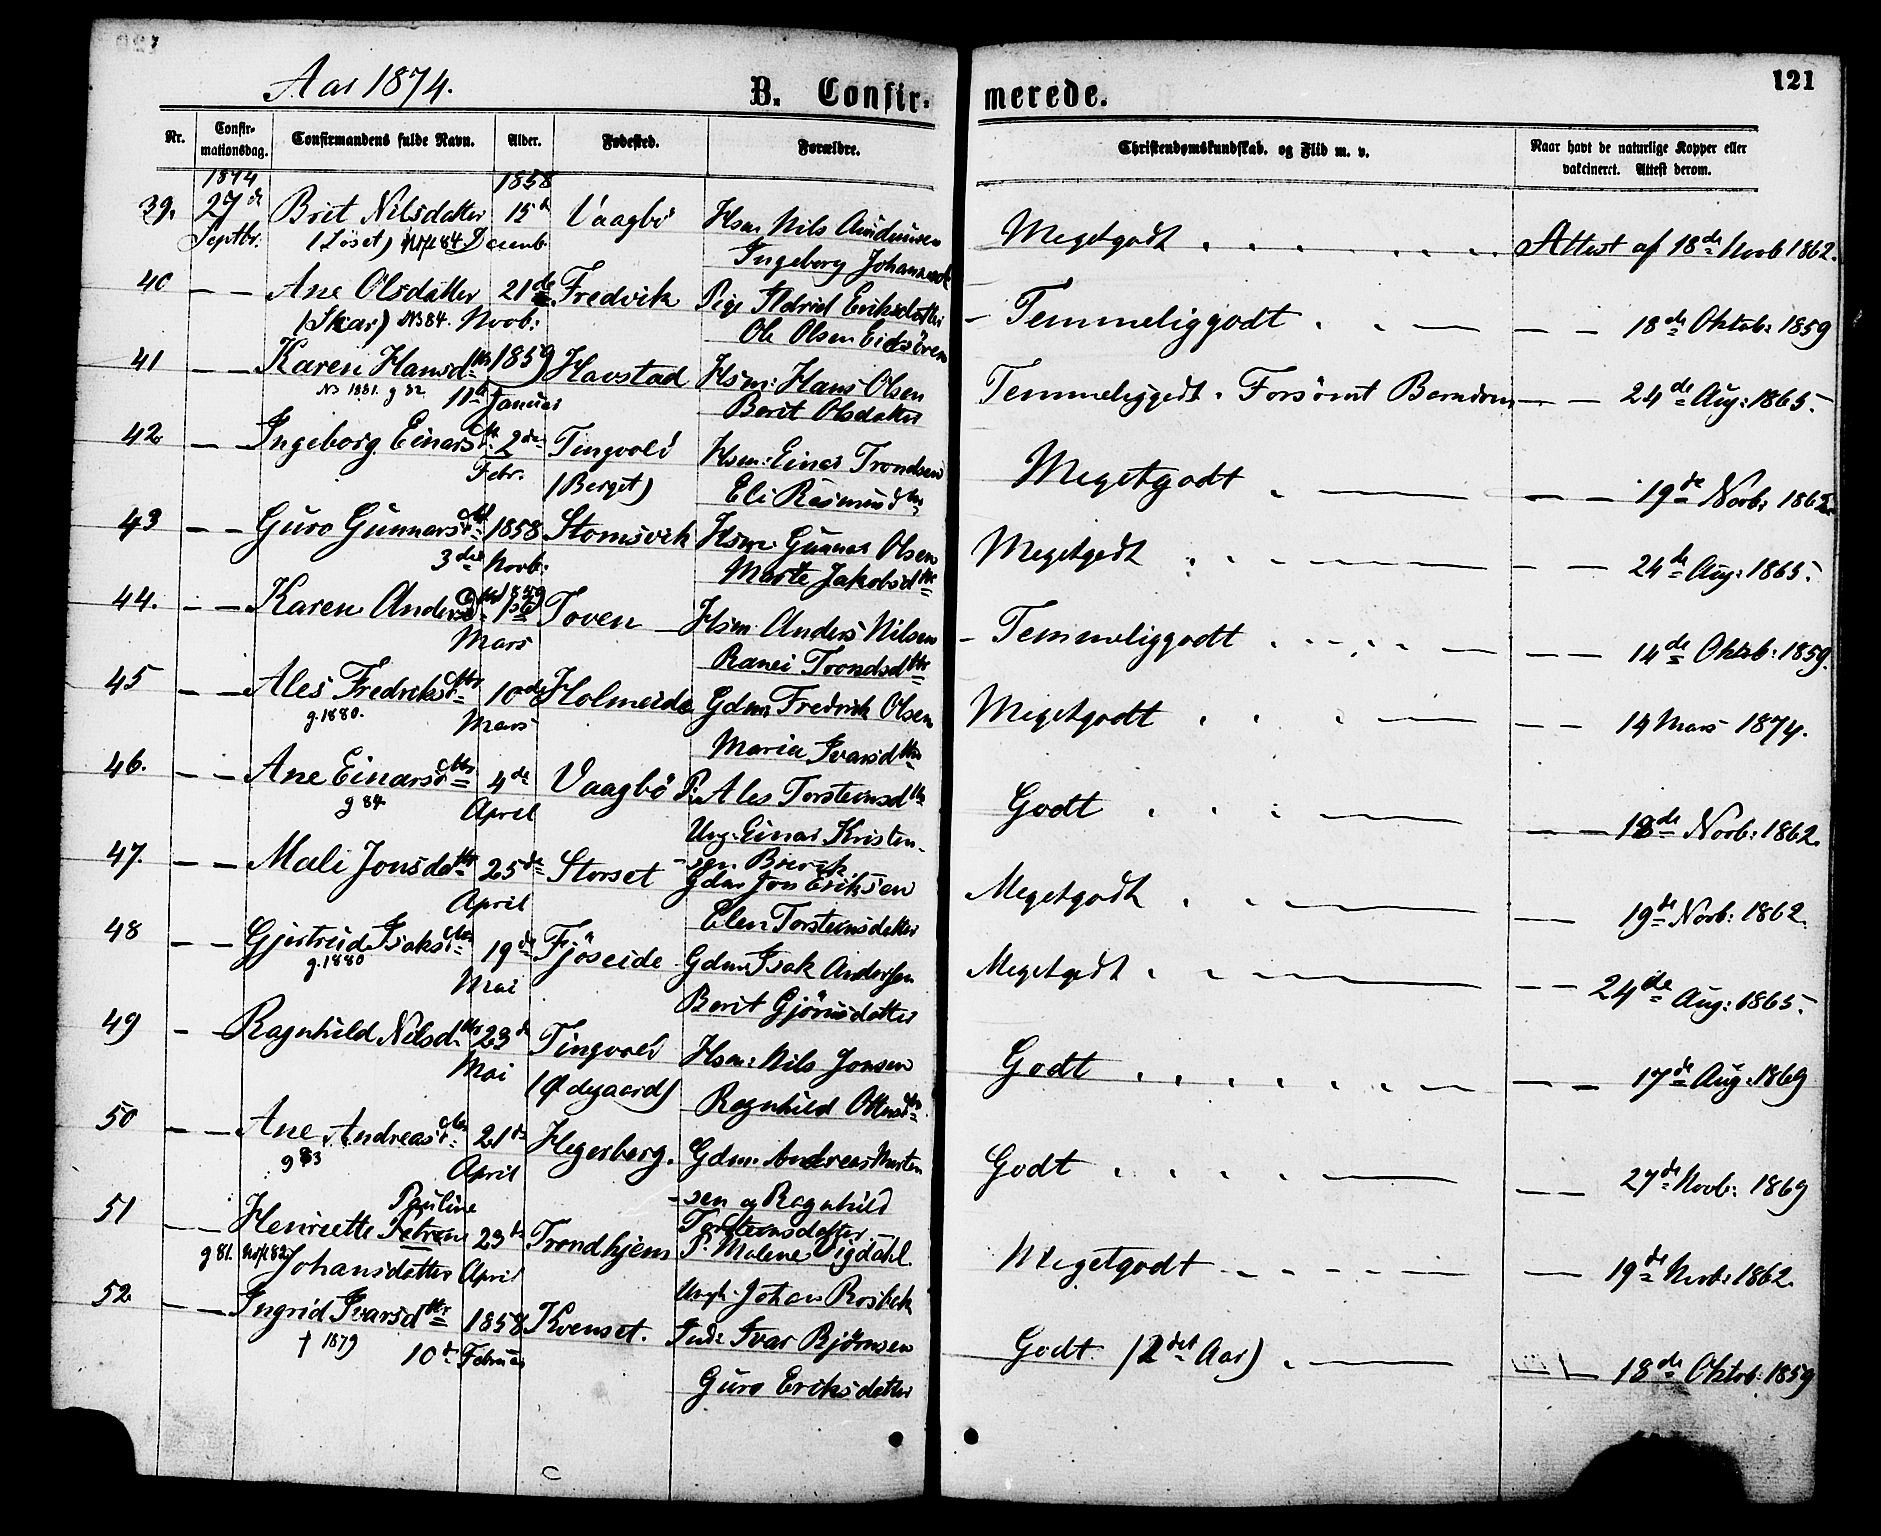 Aar 1874.
B. Confir-
merede.
121
Nr.
Confir-
mationsdag.
Confirmandens fulde Navn.
Alder.
Fødested.
Forældre.
Christendomskundskab, og Flid m. v.
Naar havt de naturlige Kopper eller
vakcineret. Attest derom.
1874
1858
39. 27de Brit Nilsdatter 15de Vaagbö Hsm. Nils Amundsen Megetgodt Attest af 18de Novb 1862.
Septbr. (Löset) 84. Decemb. Ingeborg
40 — — Ane Olsdatter 21de Fredvik Pige Eriksdatter — Temmeliggodt — — 18de Oktob: 1859
(Skar) N384. Novb: Ole Olsen Eidsören
41 — — Karen Hansdttr 1859 Havstad Hsm: Hans Olsen Temmeliggodt. Forsömt Barndom — — 24de Aug: 1865.
N3 1881. g 82 11te Januar Berit Olsdatter
42 — Ingeborg Einarsdtr. 2den Tingvold Hsm: Einar Trondsen Megetgodt — — 19de Novb: 1862
Febr. (Berget) Eli Rasmusdtr
43 — — Guro Gunnarsdtr 1858 Stomsvik Hsm: Gunnar Olsen Megetgodt — — 24de Aug: 1865.
3die Novb: Marte Jakobsdtr
44. — — Karen Andersdtr 1859 1ste Toven — Hsm Anders Nilsen — Temmeliggodt — — 14de Oktob: 1859.
Mars Ranei Trondsdttr
45 — — Ales Fredriksdttr 10de Holmeide Gdm: Fredrik Olsen Megetgodt — — 14 Mars 1874.
g. 1880. Mars Maria Ivarsdtr
46. — — Ane Einarsdttr 4de Vaagbö P: Ales Torsteinsdtr Godt — — 18de Novb: 1862.
g 84 April Ung: Einar Kristen-
47. — — Mali Jonsdattr 25de Storset Gdm Jon Eriksen Megetgodt — 19de Novb: 1862
April Elen Torsteinsdatter
48 — — Gjertrud Isaksdtr 19de Fjöseide Gdm Isak Andersen Megetgodt — — 24de Aug: 1865.
g. 1880 Mai Berit Gjörnsdatter
49 — — Ragnhild Nilsdttr 23de Tingvold Hsm: Nils Jonsen Godt — — 17de Aug. 1869
Mai (Ødegaard) Ragnhild
50 — — Ane Andreasdtr 21de Hegerberg. Gdm. Andreas Morten Godt — — 27de Novb: 1869
g 83 April -sen og Ragnhild
Pauline Torsteinsdatter
51 — — Henriette Petrea 23de Trondhjem P. Malene Sigdahl Megetgodt — 19de Novb: 1862
g 81. Johansdatter April Ungk. Johan Rosbek
52 — — Ingrid Ivarsdttr 1858 Kvenset. Ivar Björnsen Godt (2det Aar) — 18de Oktob: 1859
† 1879 10de Februar Guro Eriksdatter